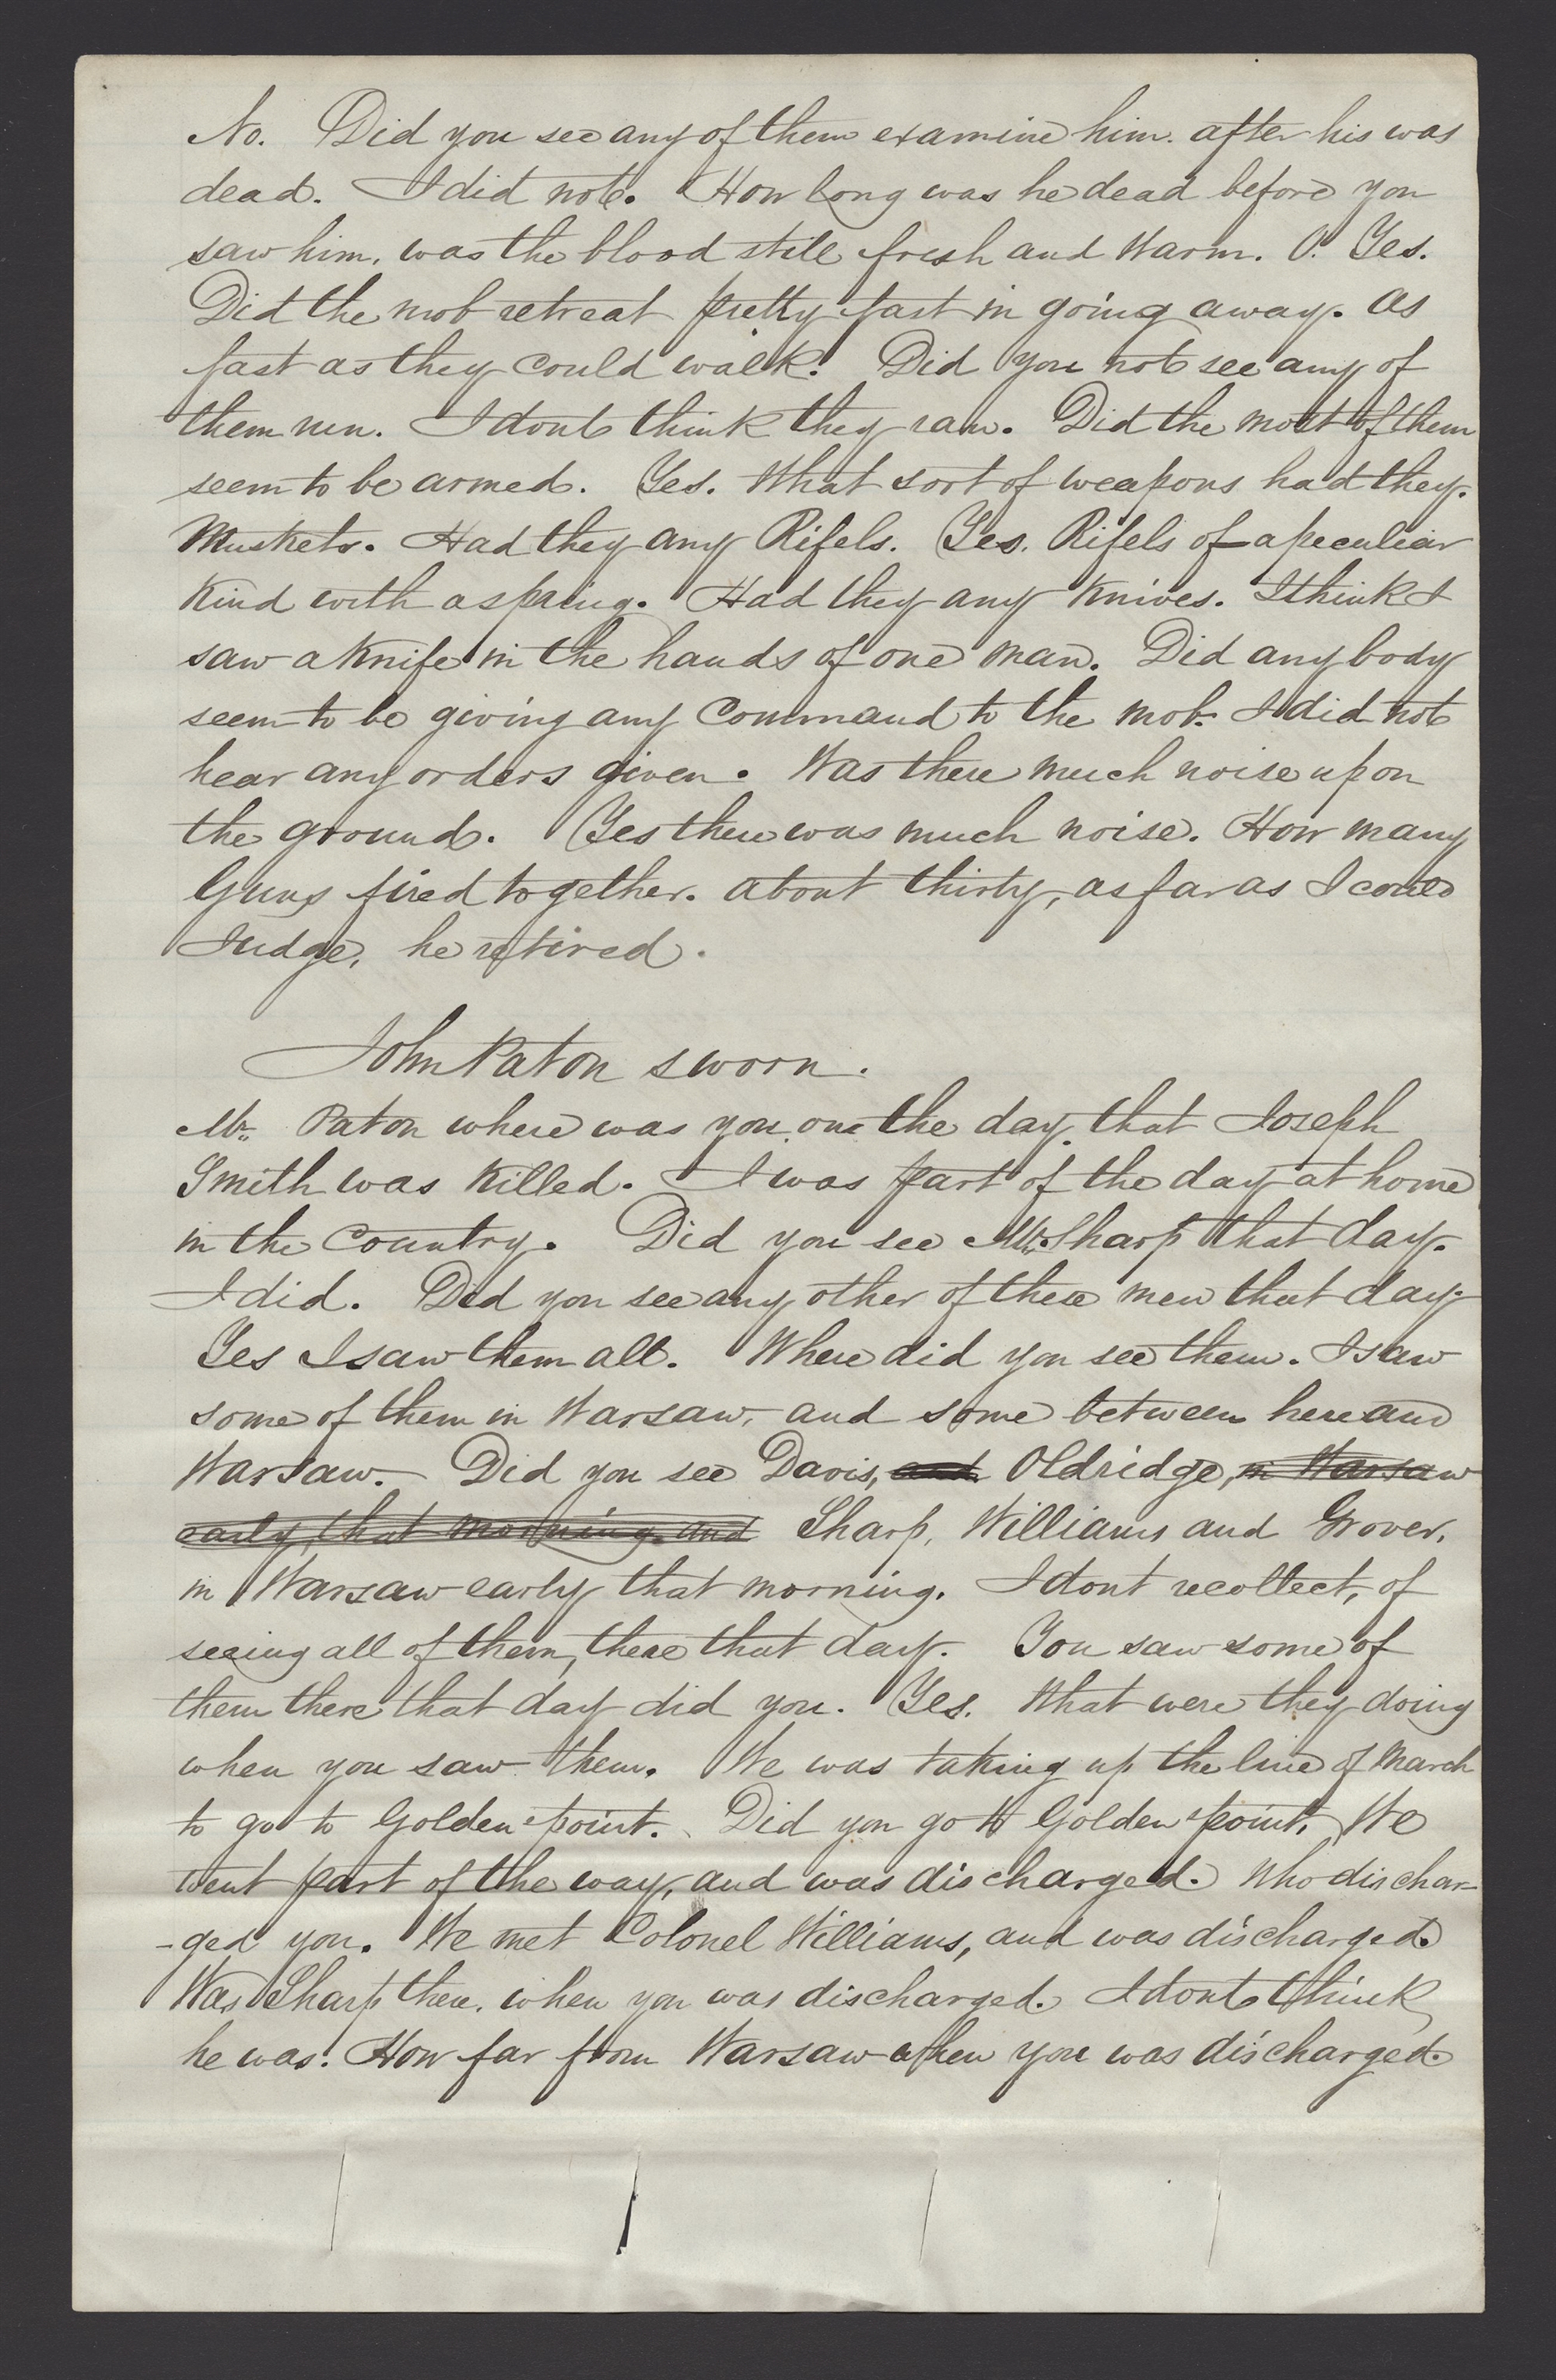 No. Did you see any of them examine him. after his was
dead. I did not. How long was he dead before you
saw him, was the blood still fresh and Warm. O. Yes.
Did the mob retreat pretty fast in going away. As
fast as they could walk. Did you not see any of
them run. I dont think they ran. Did the most of them
seem to be armed. Yes. What sort of weapons had they.
Muskets. Had they any Rifels. Yes. Rifels of a peculiar
Kind with a spring. Had they any Knives. I think I
saw a Knife in the hands of one man. Did any body
seem to be giving any Command to the mob. I did not
hear any orders given. Was there much noise upon
the ground. Yes there was much noise. How many
Guns fired together. about thirty, as far as I could
Judge, he retired.
John Paton sworn.
Mr. Paton where was you on the day that Joseph
Smith was Killed. I was part of the day at home
in the Country. Did you see Mr. Sharp that day.
I did. Did you see any other of these men that day.
Yes I saw them all. Where did you see them. I saw
some of them in Warsaw, and some between here and
Warsaw. Did you see Davis, and Oldridge, in Warsaw
early that morning and Sharp, Williams and Grover,
in Warsaw early that morning. I dont recollect, of
seeing all of them, there that day. You saw some of
them there that day did you. Yes. What were they doing
when you saw them. We was taking up the line of March
to go to Golden point. Did you go to Golden point, We
went part of the way, and was discharged. Who dischar-
-ged you. We met Colonel Williams, and was discharged.
Was Sharp there, when you was discharged. I dont think
he was. How far from Warsaw when you was discharged.